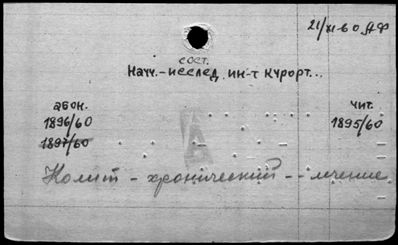 21/XI-60 ДФ
сост.
Науч.-исслед. ин-т курорт...
абон. чит.
1896/60 1895/60
1897/60
Колит - хронический - - лечение